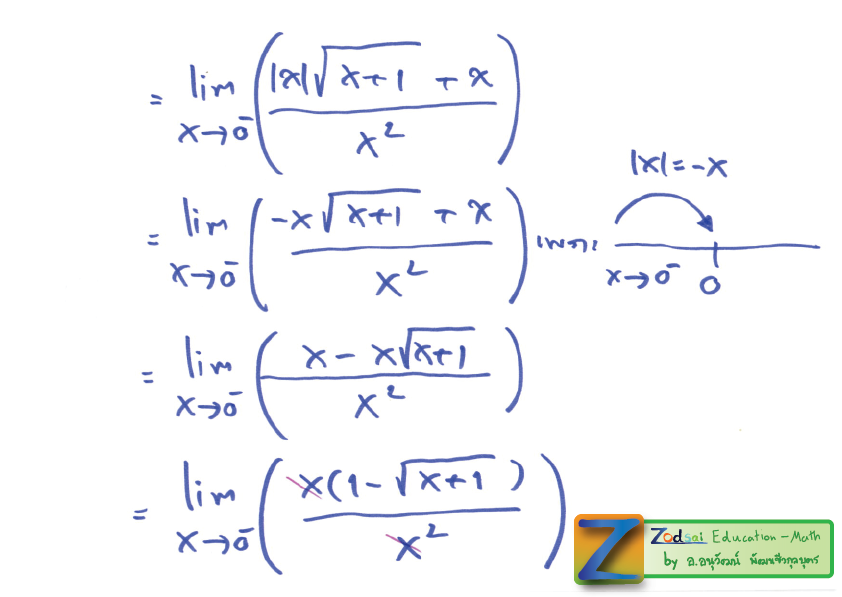 = lim x→0⁻ (|x|√(x+1) + x / x²)
|x| = -x
= lim x→0⁻ (-x√(x+1) + x / x²) เพราะ x→0⁻ 0
= lim x→0⁻ (x - x√(x+1) / x²)
= lim x→0⁻ (x(1 - √(x+1)) / x²)
Z Zodsai Education - Math
by อ.อนุวัฒน์ พัฒนชีวกุลบุตร